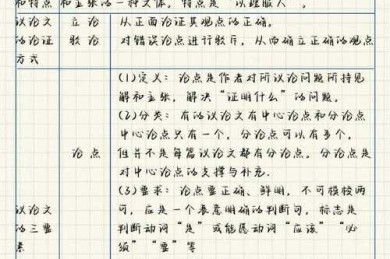 和特点和主张的一种文体,特点是“以理服人”。
议论文的论证方式
立论
从正面论证其观点的正确。
驳论
对错误论点进行驳斥,从而确立正确的观点
议论文的三要素
论点
(1)定义:论点是作者对所议论问题所持见
解和主张,解决“证明什么”的问题。
(2)分类:有的议论文有中心论点和分论点
中心论点只有一个,分论点可以有多个,
但并不是每篇议论文都有分论点。分论点是
对中心论点的支撑与补充。
(3)要求:论点要正确、鲜明,不可模棱两
可,应是一个表意明确的判断句,标志是
判断动词“是”或能愿动词“应该”“必
须”“要”等